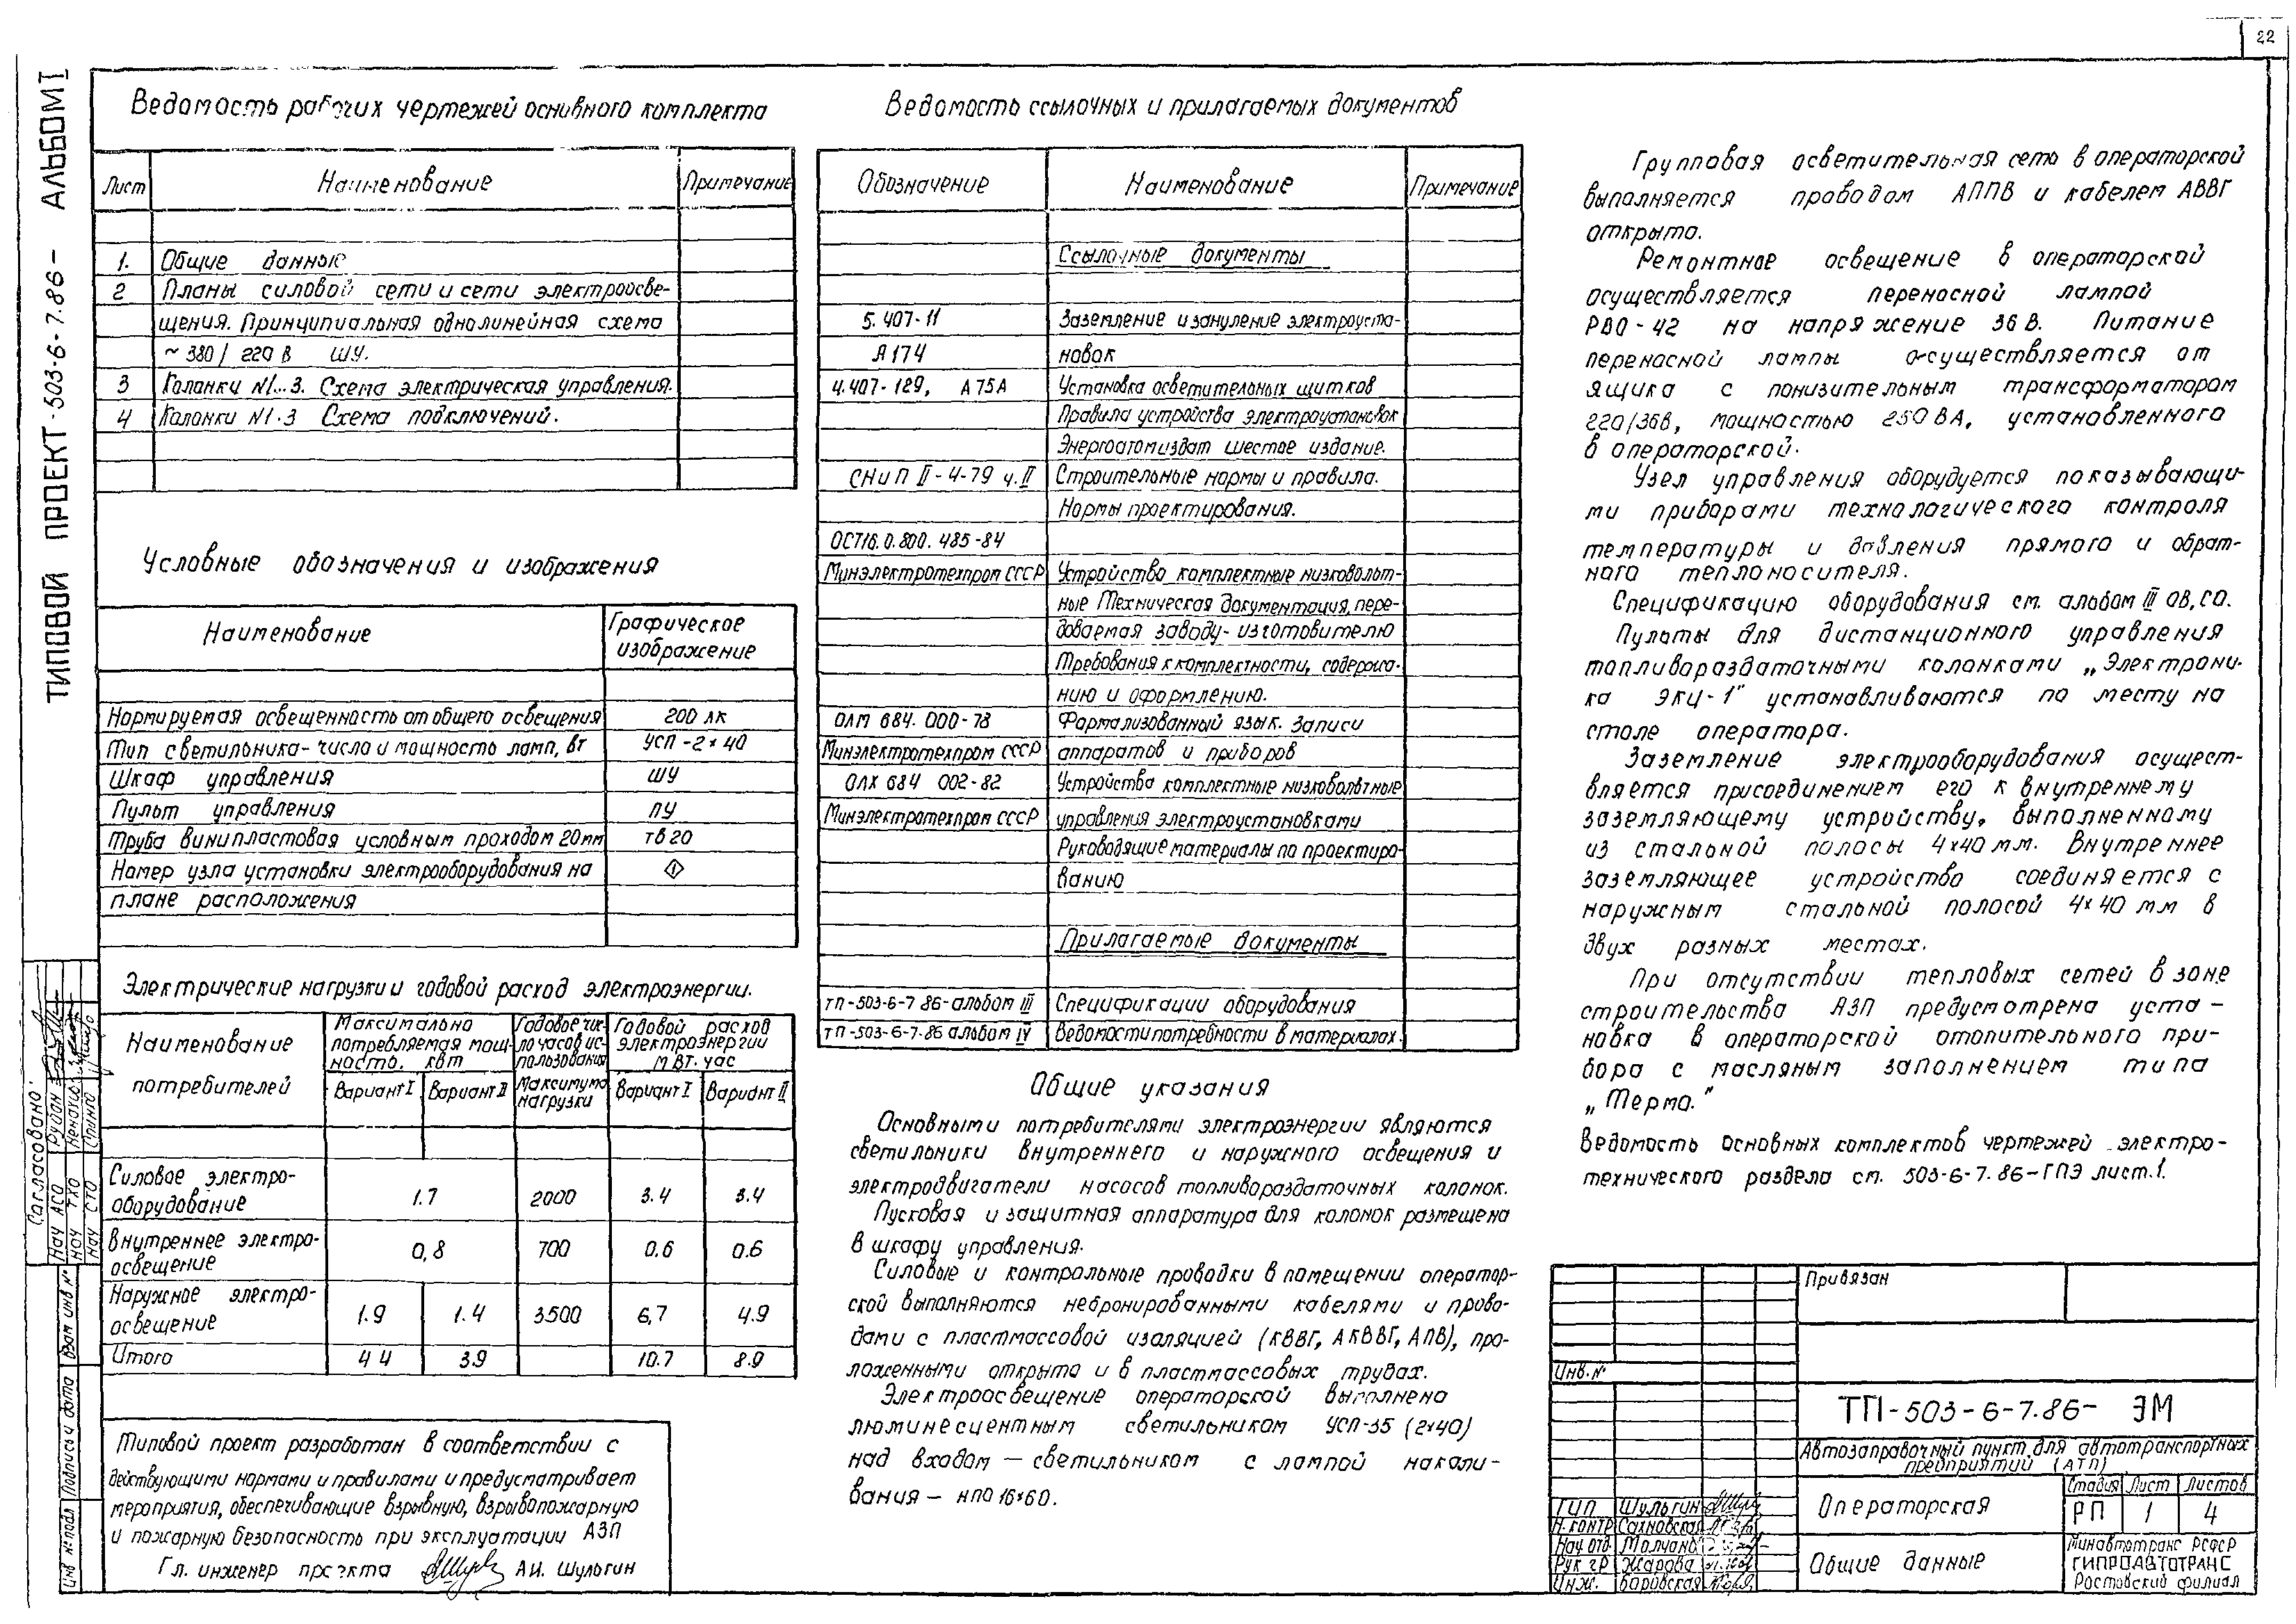 22
ТИПОВОЙ ПРОЕКТ-503-6-7.86- АЛЬБОМ I
Ведомость рабочих чертежей основного комплекта
Лист Наименование Примечание
1. Общие данные
2 Планы силовой сети и сети электроосве-
щения. Принципиальная однолинейная схема
~380/220 В ШУ.
3 Колонки N1...3. Схема электрическая управления.
4 Колонки N1-3 Схема подключений.
Условные обозначения и изображения
Наименование Графическое
изображение
Нормируемая освещенность от общего освещения 200 лк
Тип светильника-число и мощность ламп, вт УСП-2×40
Шкаф управления ШУ
Пульт управления ПУ
Труба винипластовая условным проходом 20мм тв20
Номер узла установки электрооборудования на 1
плане расположения
Электрические нагрузки и годовой расход электроэнергии.
Наименование
потребителей
Максимально
потребляемая мощ-
ность. квт
Годовое чис-
ло часов ис-
пользования
Максимума
нагрузки
Годовой расход
электроэнергии
МВт.час
Вариант I Вариант II Вариант I Вариант II
Силовое электро-
оборудование 1.7 2000 3.4 3.4
Внутреннее электро-
освещение 0,8 700 0.6 0.6
Наружное электро-
освещение 1.9 1.4 3500 6,7 4.9
Итого 4 4 3.9 10.7 8.9
Типовой проект разработан в соответствии с
действующими нормами и правилами и предусматривает
мероприятия, обеспечивающие взрывную, взрывопожарную
и пожарную безопасность при эксплуатации АЗП
Гл. инженер проекта А.И. Шульгин
Согласовано:
Нач АСО Рудан
Нач ТХО
Нач СТО
Взам инв N
Подпись и дата
Инв N подл
Ведомость ссылочных и прилагаемых документов
Обозначение Наименование Примечание
Ссылочные документы
5.407-11 Заземление и зануление электроуста-
А174 новок
4.407-129, А75А Установка осветительных щитков
Правила устройства электроустановок
Энергоатомиздат шестое издание.
СНиП II-4-79 ч.II Строительные нормы и правила.
Нормы проектирования.
ОСТ16.0.800.485-84
Минэлектротехпром СССР Устройства комплектные низковольт-
ные Техническая документация, пере-
даваемая заводу-изготовителю
Требования к комплектности, содержа-
нию и оформлению.
ОЛМ 684.000-78 Формализованный язык. Записи
Минэлектротехпром СССР аппаратов и приборов
ОЛХ 684 002-82 Устройства комплектные низковольтные
Минэлектротехпром СССР управления электроустановками
Руководящие материалы по проектиро-
ванию
Прилагаемые документы
тп-503-6-7 86-альбом III Спецификации оборудования
тп-503-6-7.86 альбом IV Ведомости потребности в материалах.
Общие указания
Основными потребителями электроэнергии являются
светильники внутреннего и наружного освещения и
электродвигатели насосов топливораздаточных колонок.
Пусковая и защитная аппаратура для колонок размещена
в шкафу управления.
Силовые и контрольные проводки в помещении оператор-
ской выполняются небронированными кабелями и прово-
дами с пластмассовой изоляцией (КВВГ, АКВВГ, АПВ), про-
ложенными открыто и в пластмассовых трубах.
Электроосвещение операторской выполнено
люминесцентным светильником УСП-35 (2×40)
над входом — светильником с лампой накали-
вания — НПО 16×60.
Групповая осветительная сеть в операторской
выполняется проводом АППВ и кабелем АВВГ
открыто.
Ремонтное освещение в операторской
осуществляется переносной лампой
РВО-42 на напряжение 36 В. Питание
переносной лампы осуществляется от
ящика с понизительным трансформатором
220/36В, мощностью 250 ВА, установленного
в операторской.
Узел управления оборудуется показывающи-
ми приборами технологического контроля
температуры и давления прямого и обрат-
ного теплоносителя.
Спецификацию оборудования см. альбом III ОВ,СО.
Пульты для дистанционного управления
топливораздаточными колонками „Электрони-
ка ЭКЦ-1" устанавливаются по месту на
столе оператора.
Заземление электрооборудования осущест-
вляется присоединением его к внутреннему
заземляющему устройству, выполненному
из стальной полосы 4×40 мм. Внутреннее
заземляющее устройство соединяется с
наружным стальной полосой 4×40 мм в
двух разных местах.
При отсутствии тепловых сетей в зоне
строительства АЗП предусмотрена уста-
новка в операторской отопительного при-
бора с масляным заполнением типа
„Термо."
Ведомость основных комплектов чертежей электро-
технического раздела см. 503-6-7.86-ГПЭ лист.1.
Привязан
Инв.N
ТП-503-6-7.86- ЭМ
Автозаправочный пункт для автотранспортных
предприятий (АТП)
Операторская
Стадия Лист Листов
РП 1 4
Общие данные
Минавтотранс РСФСР
ГИПРОАВТОТРАНС
Ростовский филиал
ГИП Шульгин
Н.контр Сахновская
Нач отд Молчано
Рук гр Жарова
Инж. Боровская